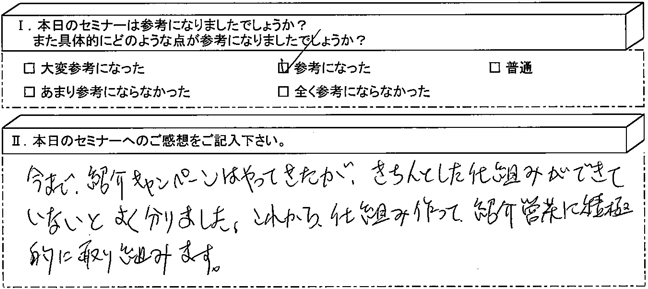 Ⅰ．本日のセミナーは参考になりましたでしょうか？
また具体的にどのような点が参考になりましたでしょうか？
□ 大変参考になった □ 参考になった □ 普通
□ あまり参考にならなかった □ 全く参考にならなかった
Ⅱ．本日のセミナーへのご感想をご記入下さい。
今まで、紹介キャンペーンはやってきたが、きちんとした仕組みができて
いないとよく分りました。これから、仕組み作って、紹介営業に積極
的に取り組みます。